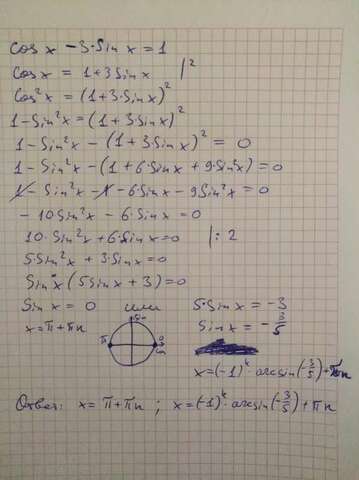 cos x - 3·sin x = 1
cos x = 1+3sin x |²
cos²x = (1+3·sin x)²
1-sin²x = (1+3·sin x)²
1-sin²x - (1+3sin x)² = 0
1-sin²x - (1+6·sin x + 9·sin²x) = 0
1 - sin²x - 1 - 6·sin x - 9sin²x = 0
- 10·sin²x - 6·sin x = 0
10·sin²x + 6·sin x = 0 |: 2
5·sin²x + 3·sin x = 0
sin x (5sin x + 3) = 0
sin x = 0 или 5·sin x = -3
x = π+πn sin x = -3/5
sin
π 0
cos
x = (-1)ᵏ·arcsin(-3/5)+πn
Ответ: x = π+πn ; x = (-1)ᵏ·arcsin(-3/5)+πn